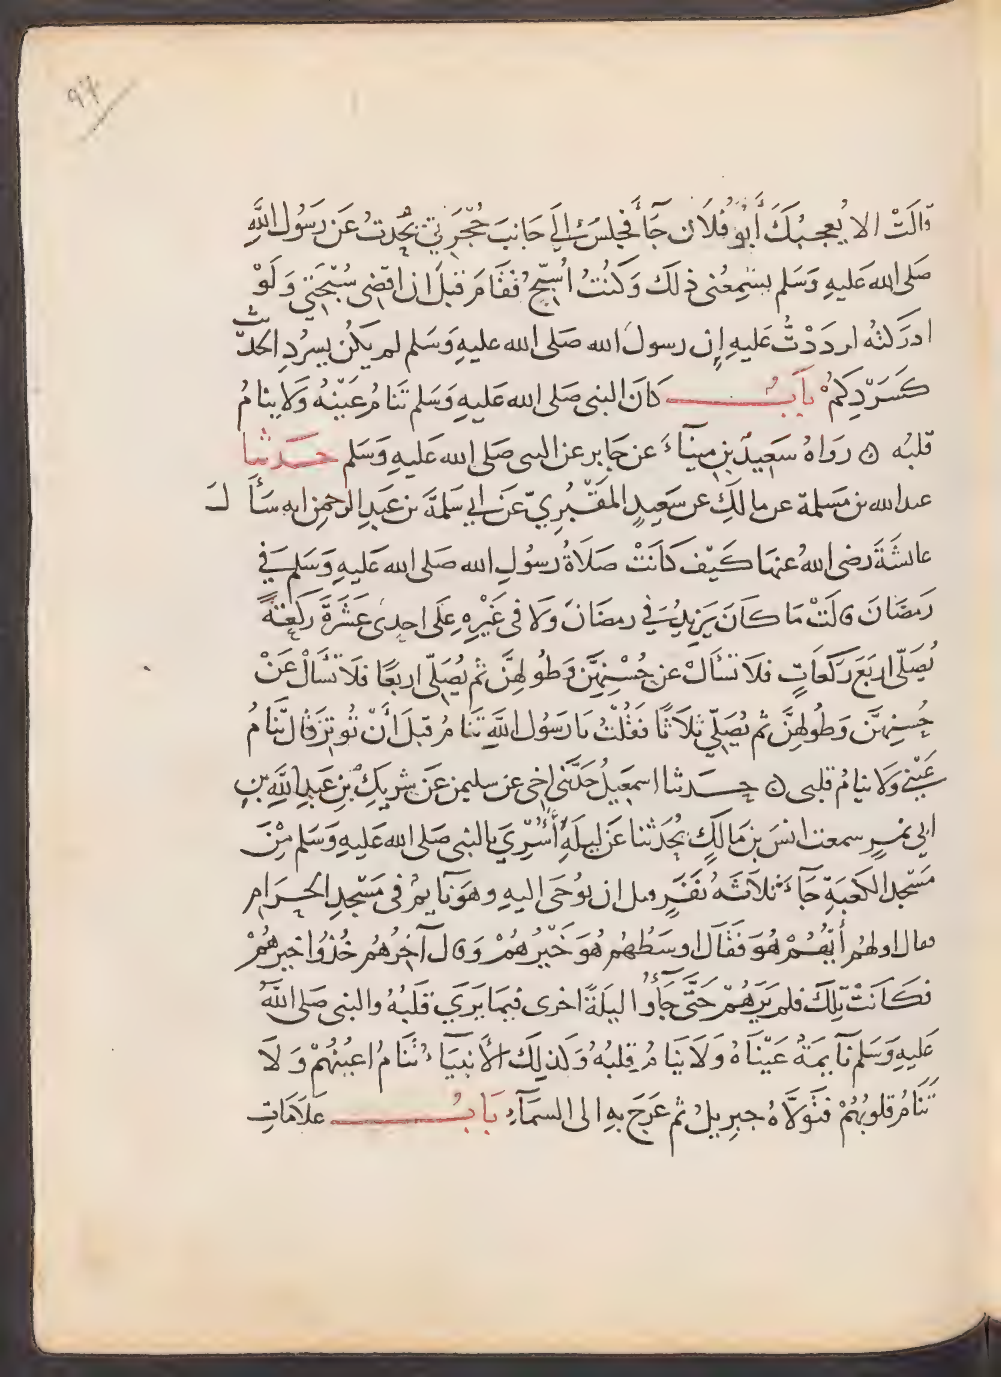 ٩٧
قَالَتْ الا يُعجبُكَ أَبُو فُلَان جَآءَ فجلسَ إِلَى جَانبَ حُجْرَتي يُحدثُ عَن رَسُول اللَّهِ
صَلى الله عَليهِ وَسَلم يسْمِعُنى ذلكَ وَكنتُ اُسَبِّحُ فقَامَ قبلَ ان اقضى سُبْحَتي وَلَوْ
ادرَكتُه لرَدَدْتُ عَليهِ إن رسولَ الله صَلى الله عليهِ وَسَلم لم يَكُن يسرُد الحديث
كَسَرْدِكمُ بَابُ كَانَ النبى صَلى الله عَليهِ وَسَلم تَنَامُ عَيْنُهُ وَلَا ينامُ
قلبُه رَوَاهُ سَعِيدُ بن مِينآءَ عَن جَابر عن النبى صَلى الله عَليهِ وَسَلم حَدثنا
عبد الله بن مَسلمة عن مالكٍ عن سَعِيدٍ المَقْبُرِيّ عَن ابي سَلمَةَ بن عَبدِ الرحمنِ انه سَأَلَ
عائشَةَ رضى اللهُ عنهَا كَيْف كَانَتْ صَلَاةُ رسُولِ الله صَلى الله عَليهِ وَسَلم في
رَمَضَانَ قالَتْ مَا كانَ يَزيدُ في رمضَانَ وَلَا فى غَيْرِهِ عَلَى احدى عَشَرَةَ ركعَةً
يُصَلّى اربَعَ ركَعَاتٍ فلَا تسْأَلْ عن حُسْنِهِنَّ وَطُولهِنَّ ثم يُصَلّى اربعًا فلَا تسَالْ عَنْ
حُسنِهنَّ وَطُولهِنَّ ثم يُصَلِّي ثلَاثًا فَقُلْتُ يا رَسُولَ اللَّهِ تنَامُ قبلَ أَنْ تُوتِرَ قال تنَامُ
عَيْنِي وَلا ينامُ قلبى حَدثنا اسمعِيلُ حَدَّثَنى اخى عن سليمن عَن شرِيكِ بْنِ عَبدِ اللَّهِ بنِ
ابى نمرٍ سمعت انسَ بن مَالكٍ يُحَدثنا عَن ليلَةِ أُسْرِيَ بالنبى صَلى الله عَليهِ وَسَلم مِنْ
مَسْجد الكَعبَةِ جَآءَ ثلَاثَه نفَرٍ قبل ان يوحَى اليهِ وهوَ نآيمُ فى مَسْجدِ الحَرَامِ
فقال اولهُم أَيّهُمْ هُوَ فقَالَ اوسَطُهُم هُوَ خَيْرُهُمْ وَقال آخِرُهُم خُذُوا خيرهُمْ
فكَانَتْ تِلكَ فلم يَرَهُمْ حَتَّى جَآءُوا ليلَةً اخرى فيمَا يَرَي قلبُهُ والنبى صَلى اللهُ
عَليهِ وَسَلم نآيمَةُ عَيْنَاهُ وَلَا ينَامُ قلبُهُ وَكذلِكَ الأَنبيَآءُ تَنَامُ اعيُنُهُمْ وَلَا
تَنَامُ قلوبُهُمْ فتَوَلَّاهُ جبرِيلُ ثم عَرَجَ بهِ الى السمَآءِ بَابُ عَلَامَاتِ